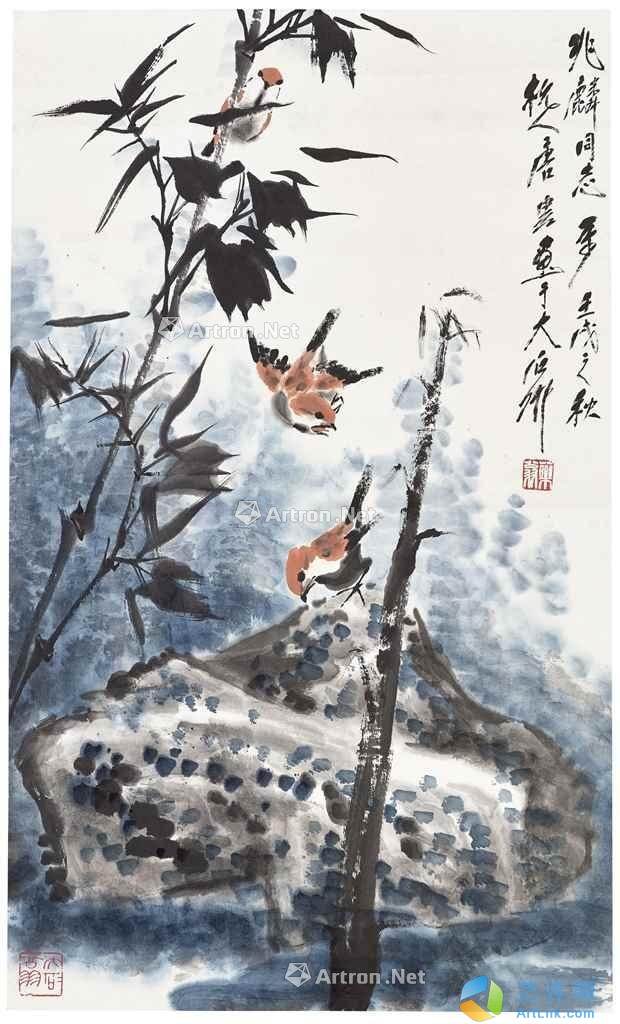 兆麟同志 壬戌之秋
杭人唐云画于大石斋
Artron.Net
Artron.Net
Artron.Net
ArtLnk.com